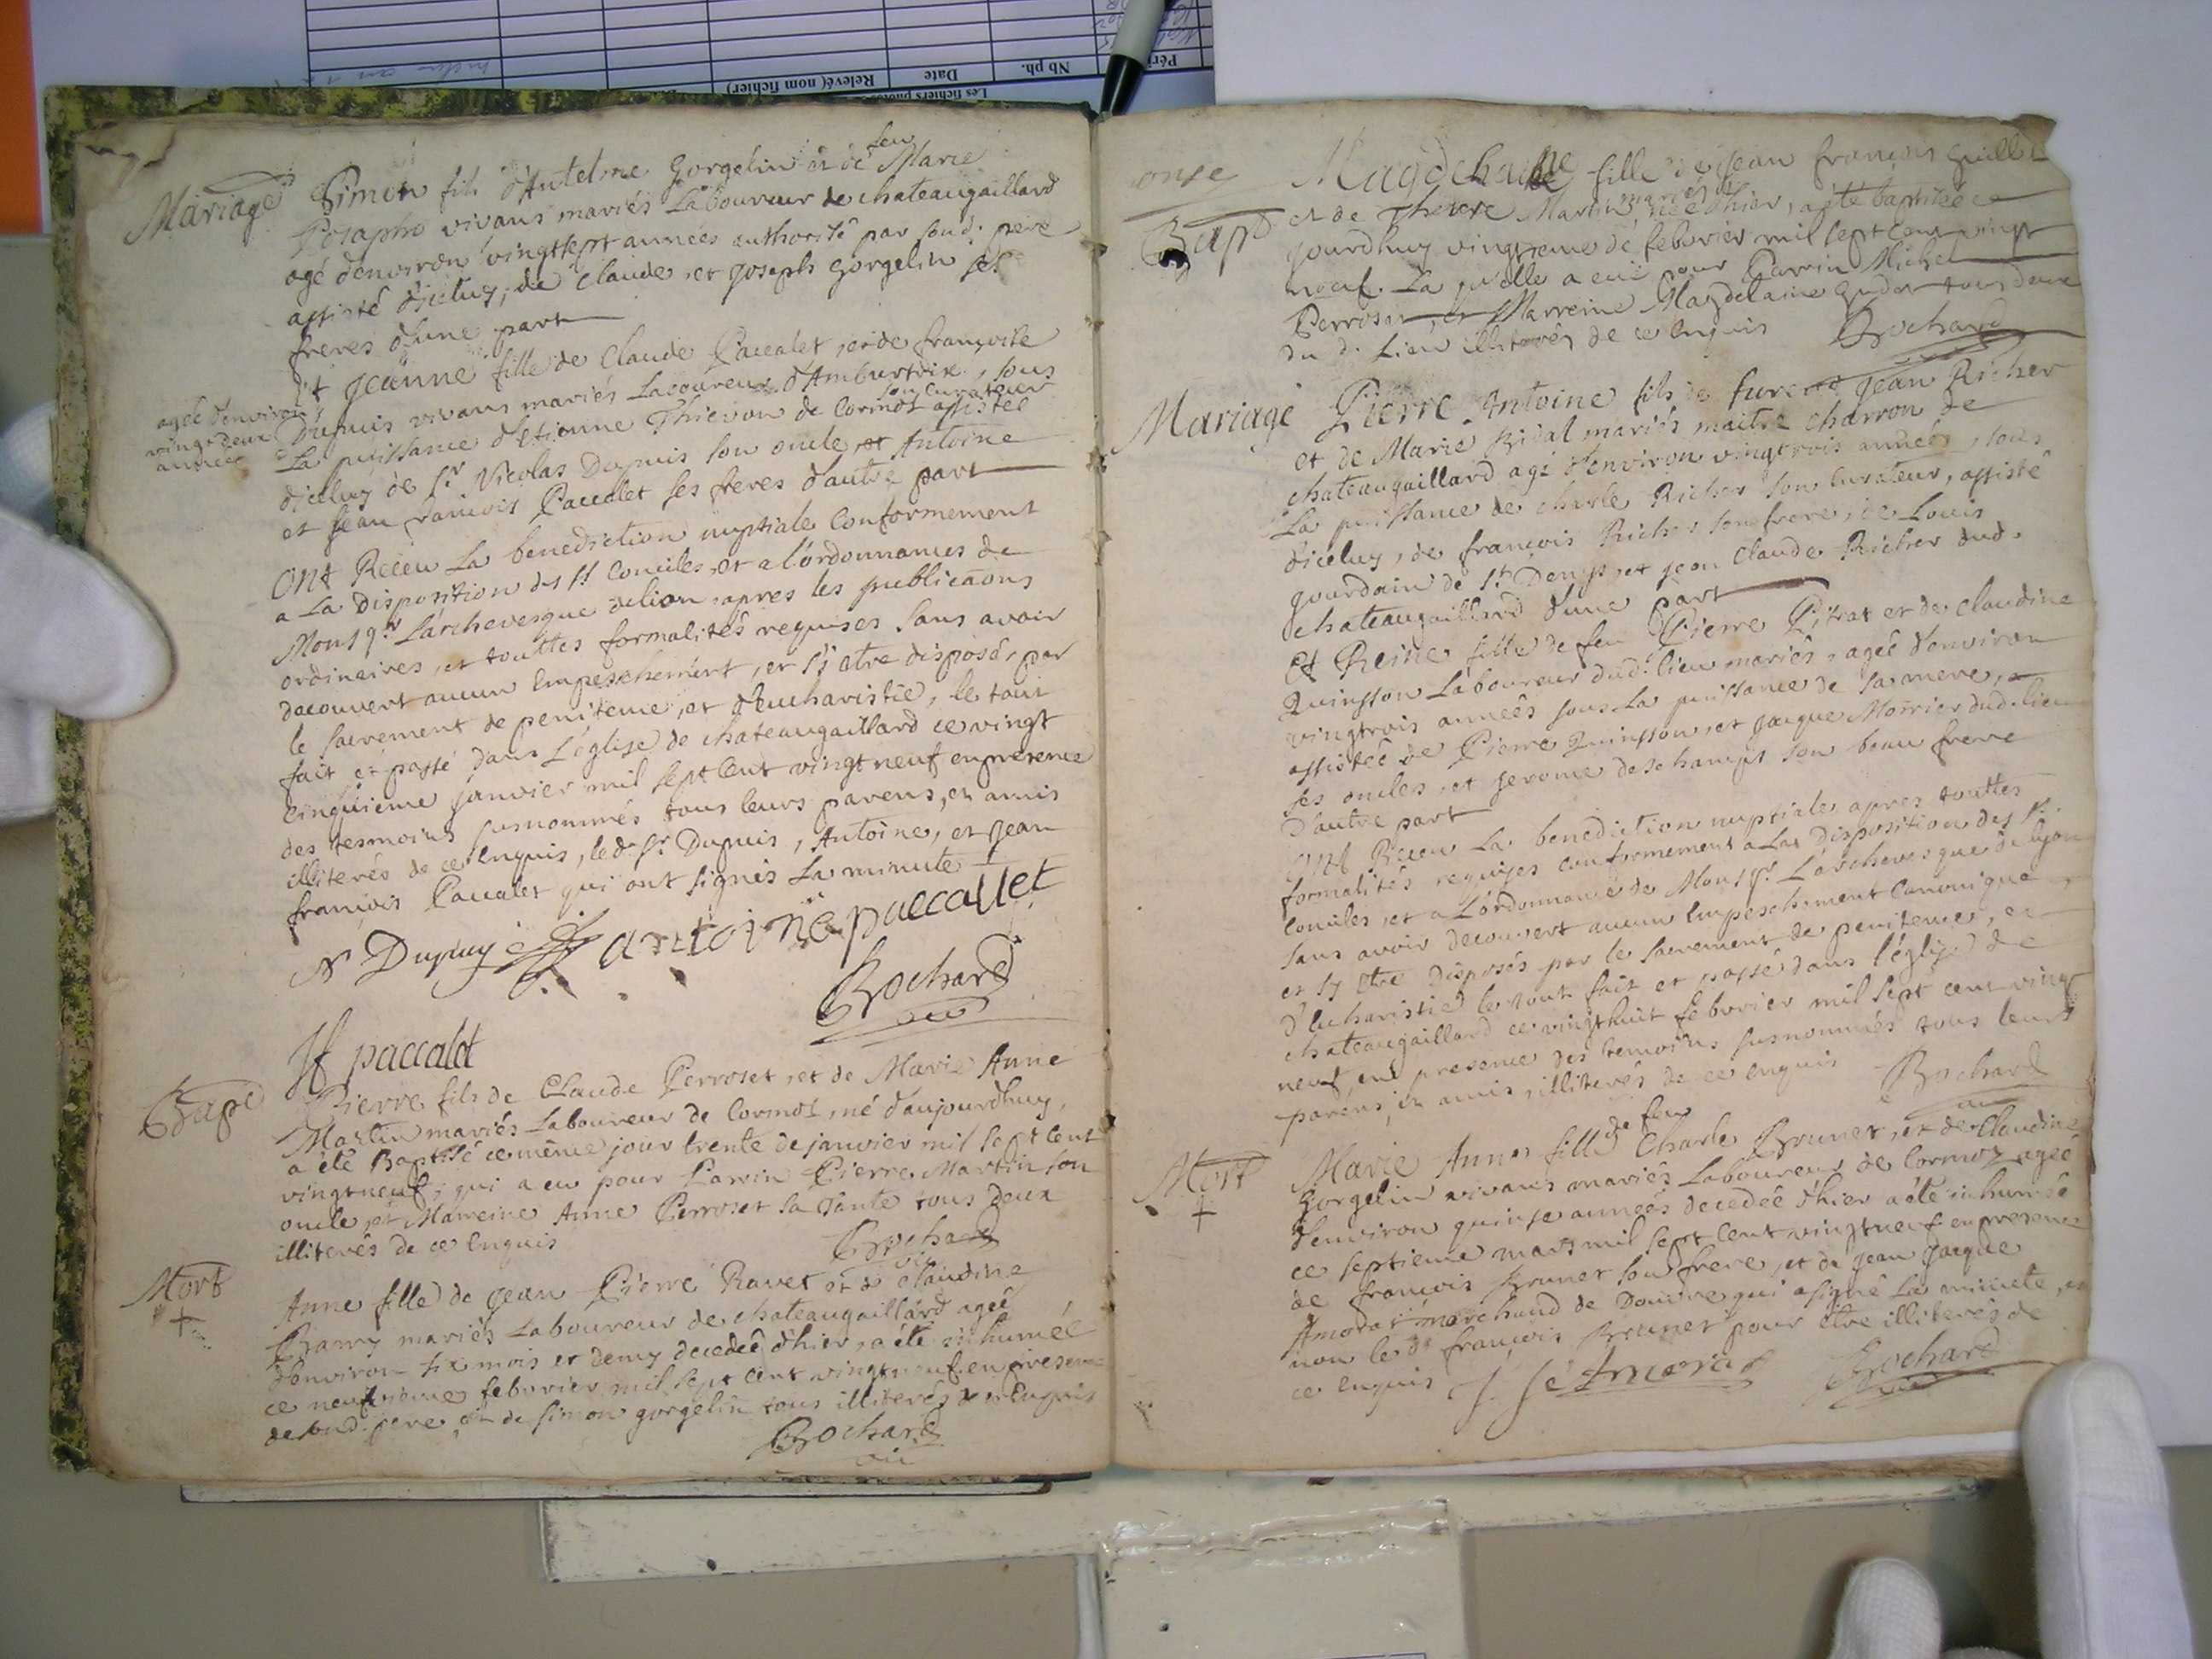 Mariage
Simon fils d'Antelme Gorgelin et de feu Marie
vivans mariés Laboureur de chateaugaillard
agé d'environ vingtsept années authorisé par sond. pere
assisté d'icluy, de Claude, et Joseph Gorgelin ses
freres d'une part
Et Jeanne fille de Claude Paccalet, et de françoise
agée d'environ
vingtdeux
années
Dupuis vivans mariés Laboureur d'Ambutrix, sous
La puissance d'Etienne Thievon de Cormoz son curateur assistée
d'icluy de Sr Nicolas Dupuis son oncle, et Antoine
et Jean françois Paccalet ses freres d'autre part
Ont Receu La benediction nuptiale Conformement
a La disposition des Sts Conciles, et a l'ordonnances de
Monsgr L'archevesque de lion, apres les publicaons
ordinaires, et touttes formalités requises Sans avoir
decouvert aucun Empeschement, et s'j etre disposé, par
le sacrement de penitence, et d'Eucharistie, le tout
fait et passé dans L'église de chateaugaillard ce vingt
cinquieme janvier mil sept Cent vingt neuf en presence
des tesmoins susnommés tous leurs parens, et amis
illiterés de ce Enquis, led. Sr Dupuis, Antoine, et Jean
françois Paccalet qui ont signés La minute
N Dupuy antoine paccallet
Brochard
Jf paccalet
Bapt
Pierre fils de Claude Perroset, et de Marie Anne
Martin mariés Laboureur de Cormoz, né d'aujourdhuy,
a été Baptisé ce même jour trente de janvier mil sept Cent
vingtneuf, qui a eu pour Parrin Pierre Martin son
oncle, et Marreine Anne Perroset sa Tante tous deux
illiterés de ce Enquis
Brochard
Mort
+
Anne fille de Jean Pierre Ravet et de Claudine
mariés Laboureur de chateaugaillard agée
d'environ six mois et demy decedée d'hier, a été inhumée
ce neufvieme febvrier mil sept Cent vingtneuf en presence
de sond. pere, et de Simon gorgelin tous illiterés de ce Enquis
Brochard
onze
Bapt
Magdelaine fille de Jean françois Guillot
et de Therese Martin mariés née d'hier, a été baptisée ce
jourdhuy vingtieme de febvrier mil sept Cent vingt
neuf. La quelle a eue pour Parrin Michel
Perroset, et Marreine Magdelaine tous deux
du d. Lieu illiterés de ce Enquis Brochard
Mariage
Pierre Antoine fils de furent Jean Richer
et de Marie mariés maitre charron de
chateaugaillard agé d'environ vingtrois années, sous
La puissance de charle Richer son Curateur, assisté
d'icluy, de françois Richer son frere, de Louis
gourdain de St Denys, et Jean Claude Richer dud.
chateaugaillard d'une part
Et Reine fille de feu Pierre Pitrat et de Claudine
Quinsson Laboureur dud. lieu mariés, agée d'environ
vingtrois années sous La puissance de sa mere,
assistée de Pierre Quinsson, et Jacque Morrier dud. lieu
ses oncles, et Jerome deschamps son beau frere
d'autre part
Ont Receu La benediction nuptiale apres touttes
formalités requises conformement a La disposition des Sts
Conciles, et a L'ordonnance de Monsgr. L'archevesque de lyon
sans avoir decouvert aucun Empeschement Canonique,
et s'j etre disposés par le sacrement de penitence, et
d'Eucharistie le tout fait et passé dans l'église de
chateaugaillard ce vingthuit febvrier mil sept cent vingt
neuf en presence des temoins susnommés tous leurs
parens, et amis, illiterés de ce enquis Brochard
Mort
+
Marie Anne fille de feu Charle Brunet, et de Claudine
Gorgelin vivans mariés Laboureur de Cormoz agée
d'environ quinse années decedée d'hier a été inhumée
ce septieme mars mil sept Cent vingtneuf en presence
de françois Brunet son frere, et de Jean Jacque
Amorat marchand de Douvre qui a signé La minute, et
non le d. françois Brunet pour être illiterés de
ce enquis J. Je Amorat Brochard